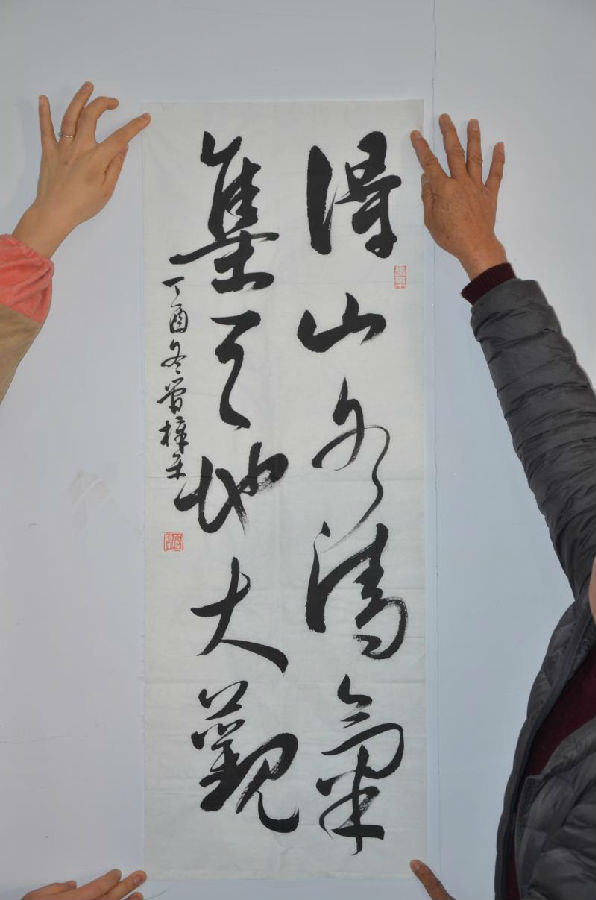 得山水清氣
集天地大觀
丁酉冬曾梓禾